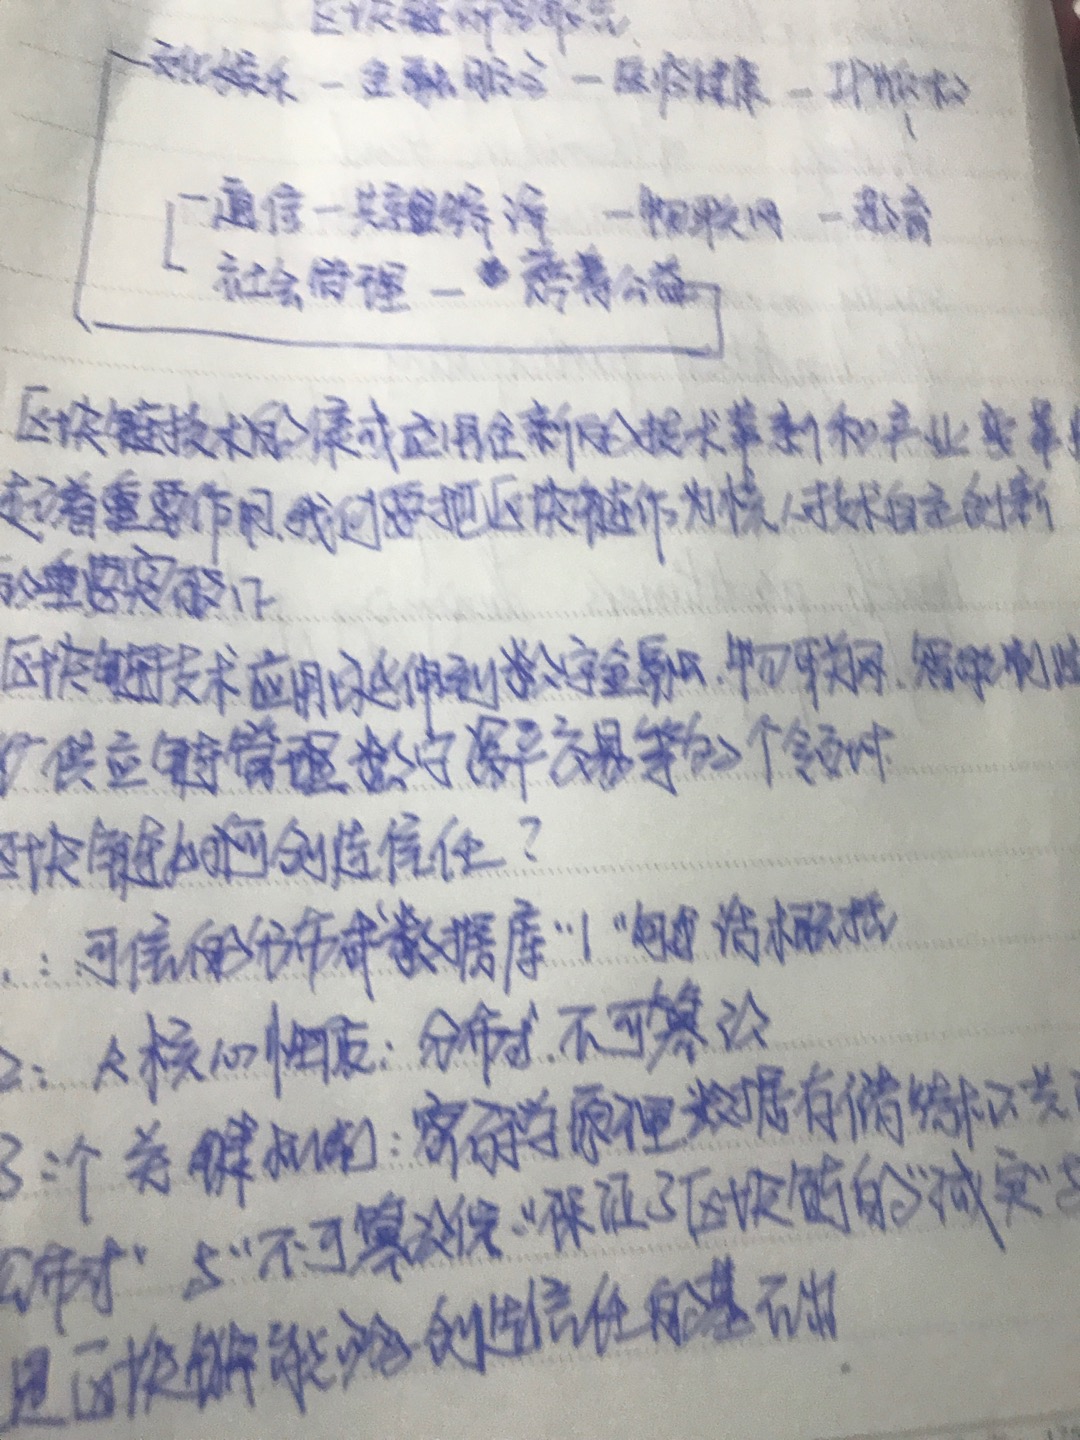 区块链的
文化娱乐 — 金融服务 — 医疗健康 — IP版权
— 通信 — 共享经济 — 物联网 — 教育
社会管理 — 慈善公益
区块链技术的集成应用在新的技术革新和产业变革
起着重要作用.我们要把区块链作为核心技术自主创新
的重要突破口
区块链技术应用已延伸到数字金融.物联网.智能制造
供应链管理 数字资产交易等多个领域.
区块链如何创造信任?
1.:可信的分布式数据库"1"句话概括
2: 大核心性质:分布式.不可篡改
3:个关键机制:密码学原理 数据存储结构 共
分布式"与"不可篡改性"保证了区块链的"诚实"与
是区块链能够创造信任的基础